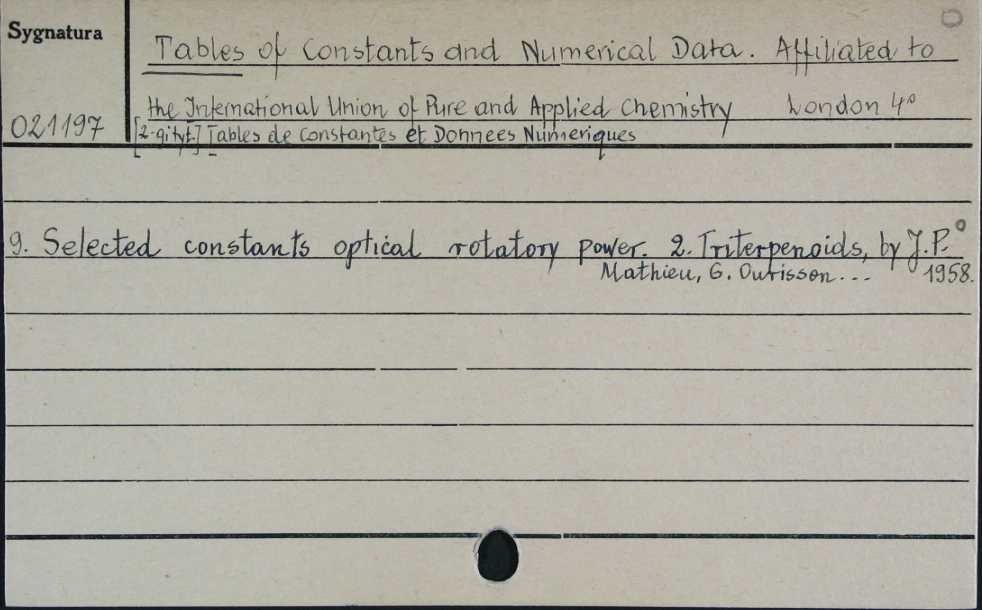 Sygnatura
Tables of Constants and Numerical Data. Affiliated to
the International Union of Pure and Applied Chemistry London 4°
021197
[2-gi tyt.] Tables de Constantes et Donnees Numeriques
9. Selected constants optical rotatory power. 2. Triterpenoids, by J.P.
Mathieu, G. Ourisson... 1958.